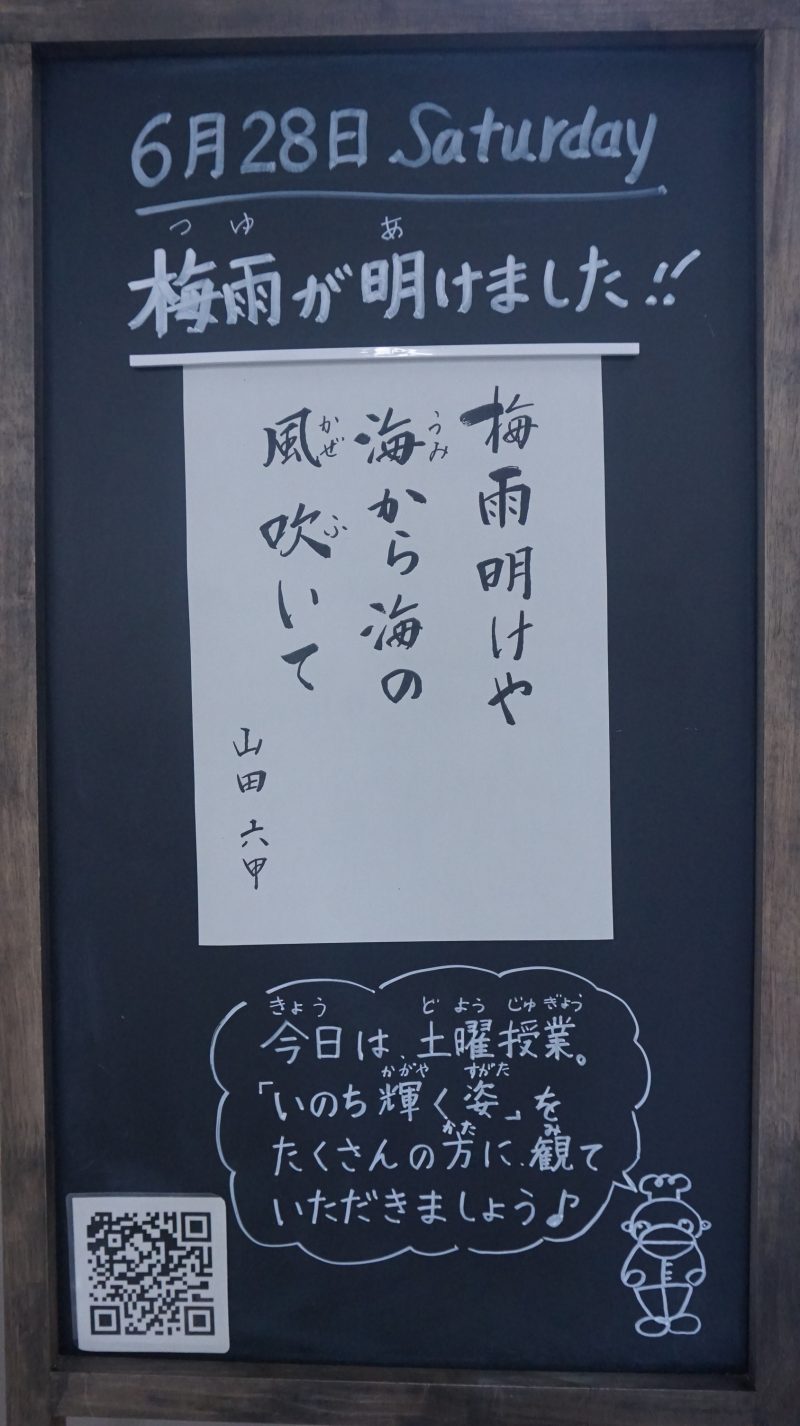 6月28日 Saturday
つゆ あ
梅雨が明けました!!
梅雨明けや
うみ
海から海の
かぜ ふ
風吹いて
山田六甲
きょう ど よう じゅ ぎょう
今日は、土曜授業。
かがや すがた
「いのち輝く姿」を
かた み
たくさんの方に、観て
いただきましょう♪